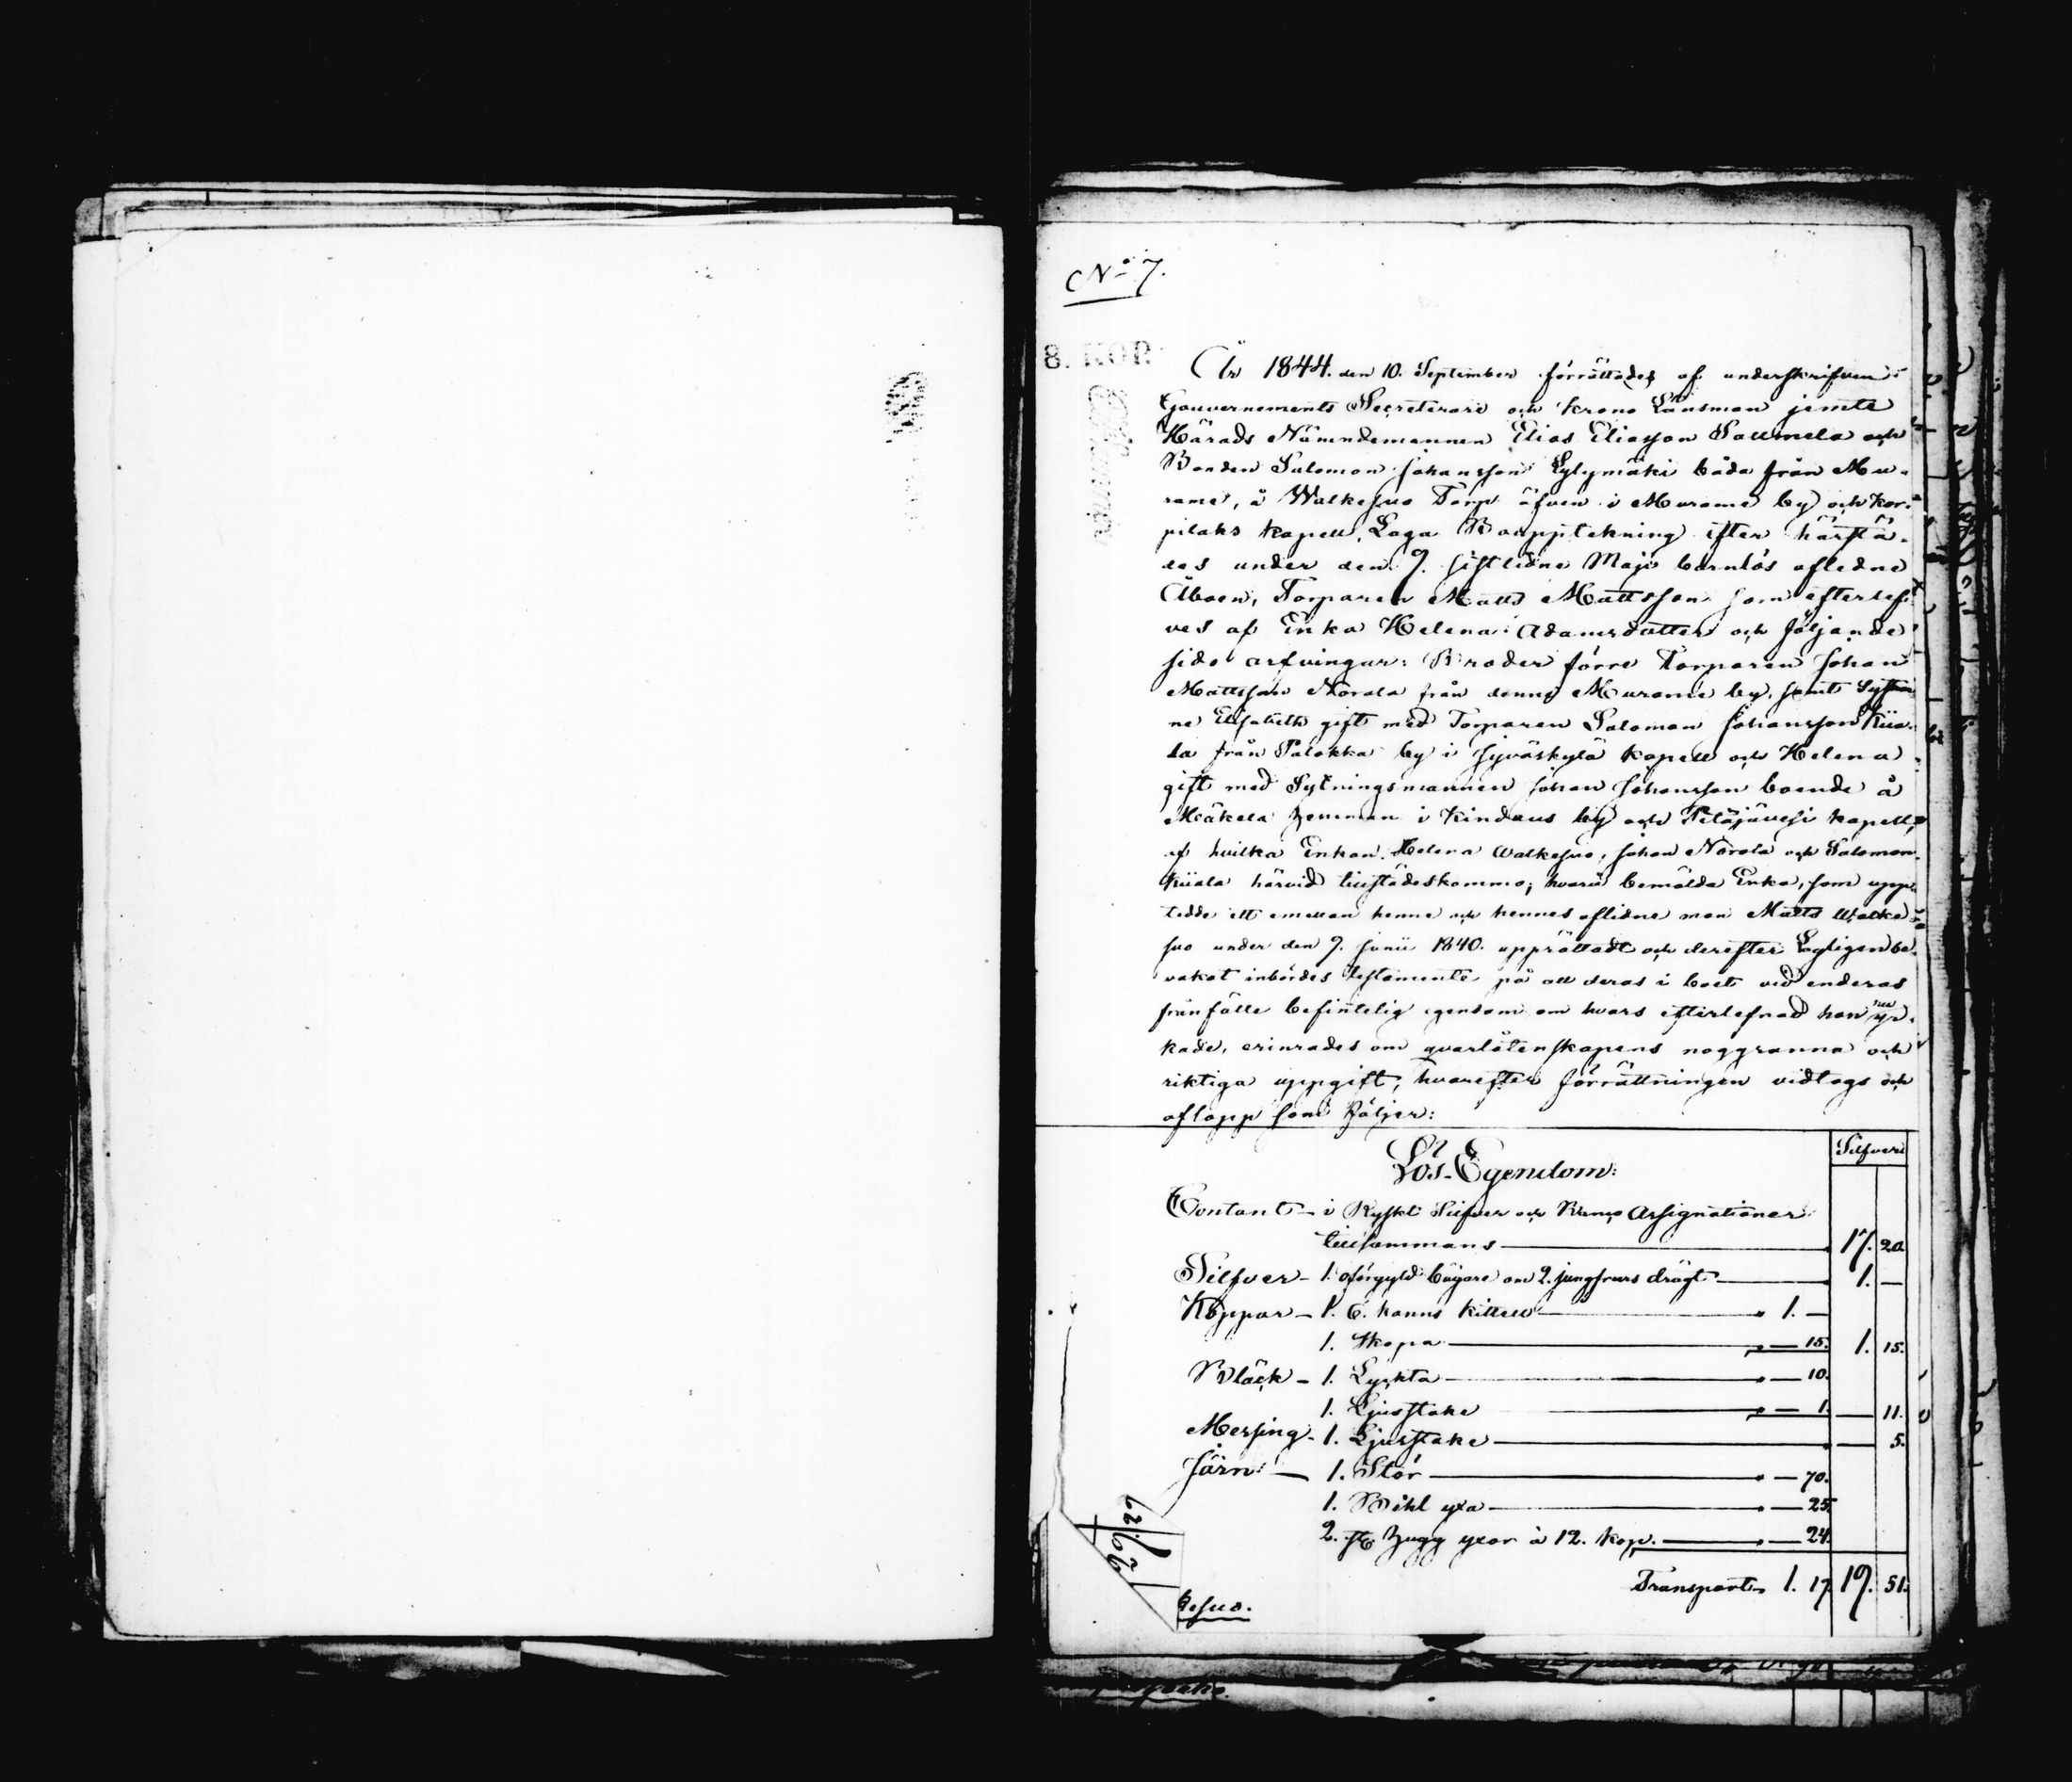 No 7.
8. KOP.
År 1844. den 10. September förrättades af underskrifven
Gouvernements Secreterare och Krono Länsman jemte
Härads Nämndemannen Elias Eliasson Saumela och
Bonden Salomon Johansson Lylymäki båda från Mu-
rame, å Walkesuo Torp äfven i Murame by och Kor-
pilaks Kapell, Laga Bouppteckning efter härstä-
des under den 9. sistledne Maji barnlös afledne
Åboen, Torparen Matts Mattsson som efterlef-
ves af Enka Helena Adamsdotter och följande
sido arfvingar: Broder förre Torparen Johan
Mattsson Norola från denne Murame by, samt Systrar-
ne Elisabeth gift med Torparen Salomon Johansson Kiia-
la från Palokka by i Jyväskylä Kapell och Helena
gift med Sytningsmannen Johan Johansson boende å
Mäkelä hemman i Kindaus by och Petäjävesi kapell,
af hvilka Enkan Helena Walkesuo, Johan Norola och Salomon
Kiiala härvid tillstädeskommo; hvarvid bemälda Enka, som upp-
tedde ett emellan henne och hennes aflidne man Matts Walke-
suo under den 9. Junii 1840. upprättadt och derefter Lagligen be-
vakat inbördes testamente på all deras i boet vid enderas
frånfälle befintelig egendom om hvars efterlefnad hon nu yr-
kade, erinrades om qvarlåtenskapens noggranna och
riktiga uppgift, hvarefter förrättningen vidtogs och
aflopp som följer:
Silfver
Lös-Egendom:
Contant – i Ryskt Silfver och Banco Assignationer
tillsammans — 17. 20.
Silfver – 1. oförgyld bägare om 2. jungfrurs drägt — 1. —
Koppar – 1. 6. kanns kittell — 1. —
1. Skopa — 15. 1. 15.
Bläck – 1. Lyckta — 10.
1. Ljusstake — 1. — 11.
Messing – 1. Ljusstake — 5.
Järn – 1. Stör — 70.
1. Bihl yxa — 25.
2. st Hugg yxor à 12. kop. — 24.
Transport 1. 19. 19. 51.